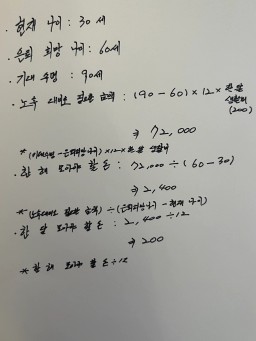 · 현재 나이 : 30세
· 은퇴 희망 나이 : 60세
· 기대 수명 : 90세
· 노후 대비로 필요한 금액 : (90 - 60) × 12 × 한 달
생활비
(200)
⇒ 72,000
* (기대수명 - 은퇴희망나이) × 12 × 한 달 생활비
· 한 해 모아야 할 돈 : 72,000 ÷ (60 - 30)
⇒ 2,400
* (노후대비로 필요한 금액) ÷ (은퇴희망나이 - 현재 나이)
· 한 달 모아야 할 돈 : 2,400 ÷ 12
⇒ 200
* 한 해 모아야 할 돈 ÷ 12